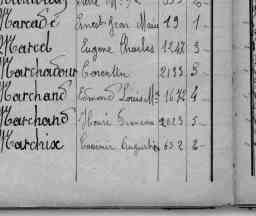 Marcadé Ernest Jean Marie 19 1
Marcel Eugène Charles 1147 3
Marchadour Corentin 2133 5
Marchand Edmond Louis M. 1672 4
Marchand Henri 2023 5
Marchix Casimir Augustin 652 2